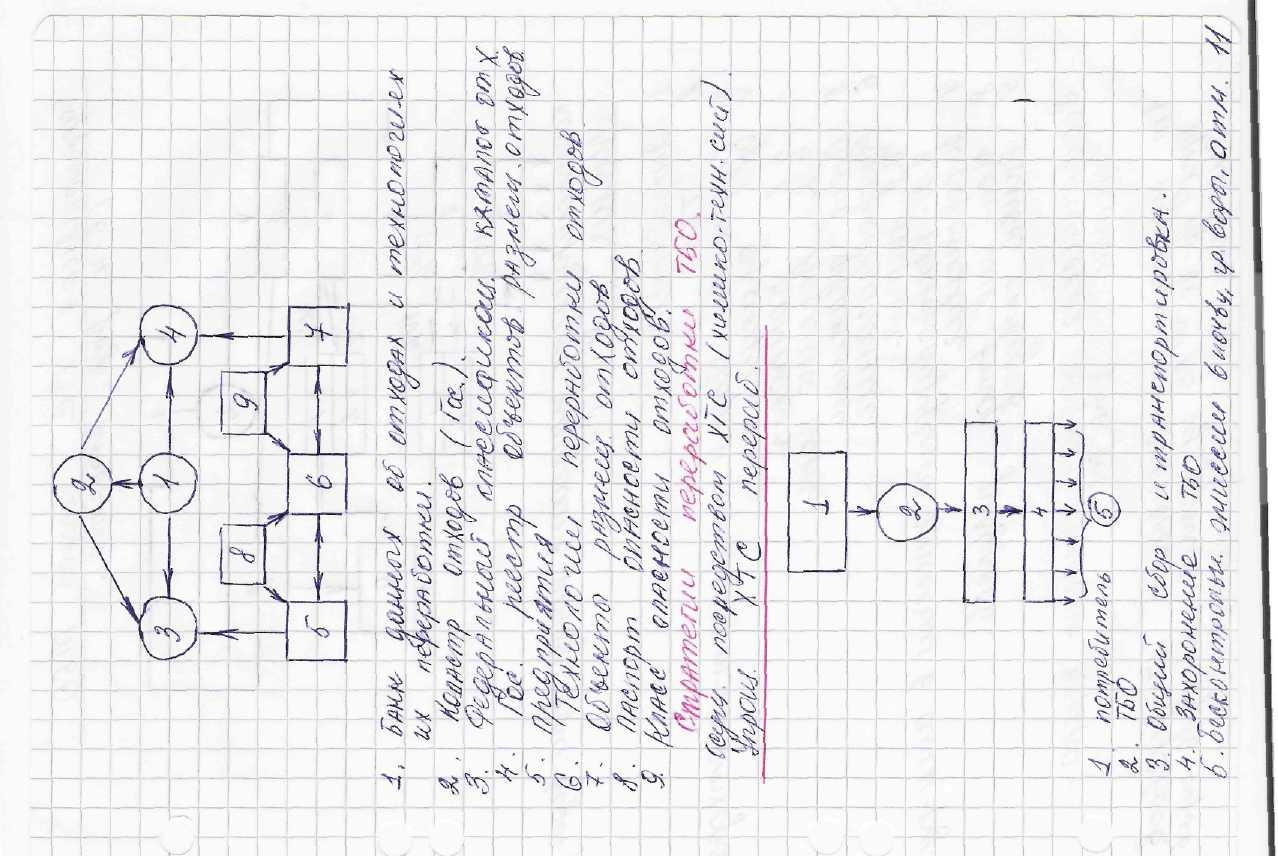 2
3
1
4
8
9
5
6
7
1. Банк данных об отходах и технологиях
их переработки.
2. Кадастр отходов (Гос.).
3. Федеральный классификац. каталог отх.
4. Гос. реестр объектов размещ. отходов
5. Предприятия
6. Технологии переработки отходов.
7. Объекты размещ. отходов
8. Паспорт опасности отходов.
9. Класс опасности отходов.
Стратегии переработки ТБО.
посредством ХТС (химико-техн. сист).
Упрощ. ХТС перераб.
1
2
3
4
5
1 потребитель
2. ТБО
3. Общий сбор и транспортировка.
4. Захоронение ТБО
5. Бесконтрольн. эмиссии в почву, гр. воды, атм.
11